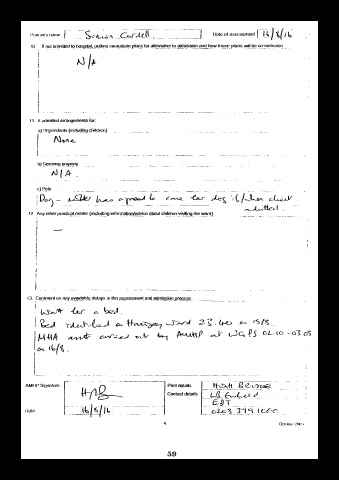 Patient's name Date of assessment 16/8/16
10. If not admitted to hospital, outline immediate plans for alternative to admission and how these plans will be co-ordinated
N/A
11. If admitted arrangements for:
a) Dependants (including children)
None
b) Securing property
N/A.
c) Pets
Dog - has agreed to care for dog if/when client
admitted.
12. Any other practical matter (including information/advice about children visiting the ward)
—
13. Comment on any avoidable delays in the assessment and admission process
Wait for a bed.
Bed identified on ward 23.40 on 15/8.
MHA carried out by AMHP at 02.10 - 03.05
on 16/8.
AMHP Signature Print details
Contact details LB Enfield
EDT
Date 16/8/16 0208 379 1000
59